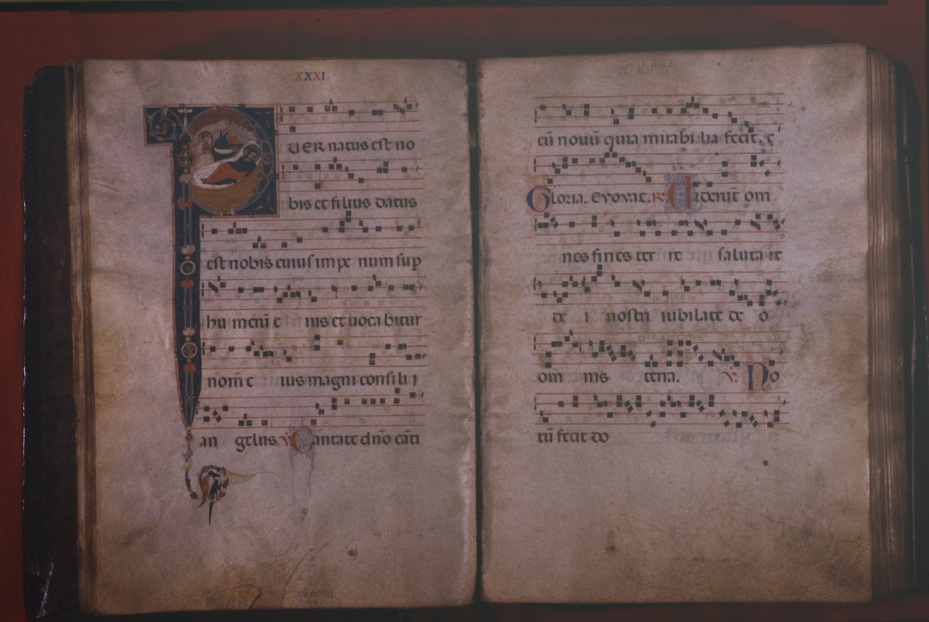 XXXI
PUER natus est no
bis et filius datus
est nobis cuius impe rium sup
hu merū e ius et uoca bitur
nom̄ e ius magni consili i
an gelus. ℣ Cantate dn̄o cāti
cū nouū quia mirabi lia fecit. 
Gloria. Evovae. ℟ Uiderūt om
nes fines ter re saluta re
de i nostri iubilate de o
om nis terra. ℣. No
tū fecit do